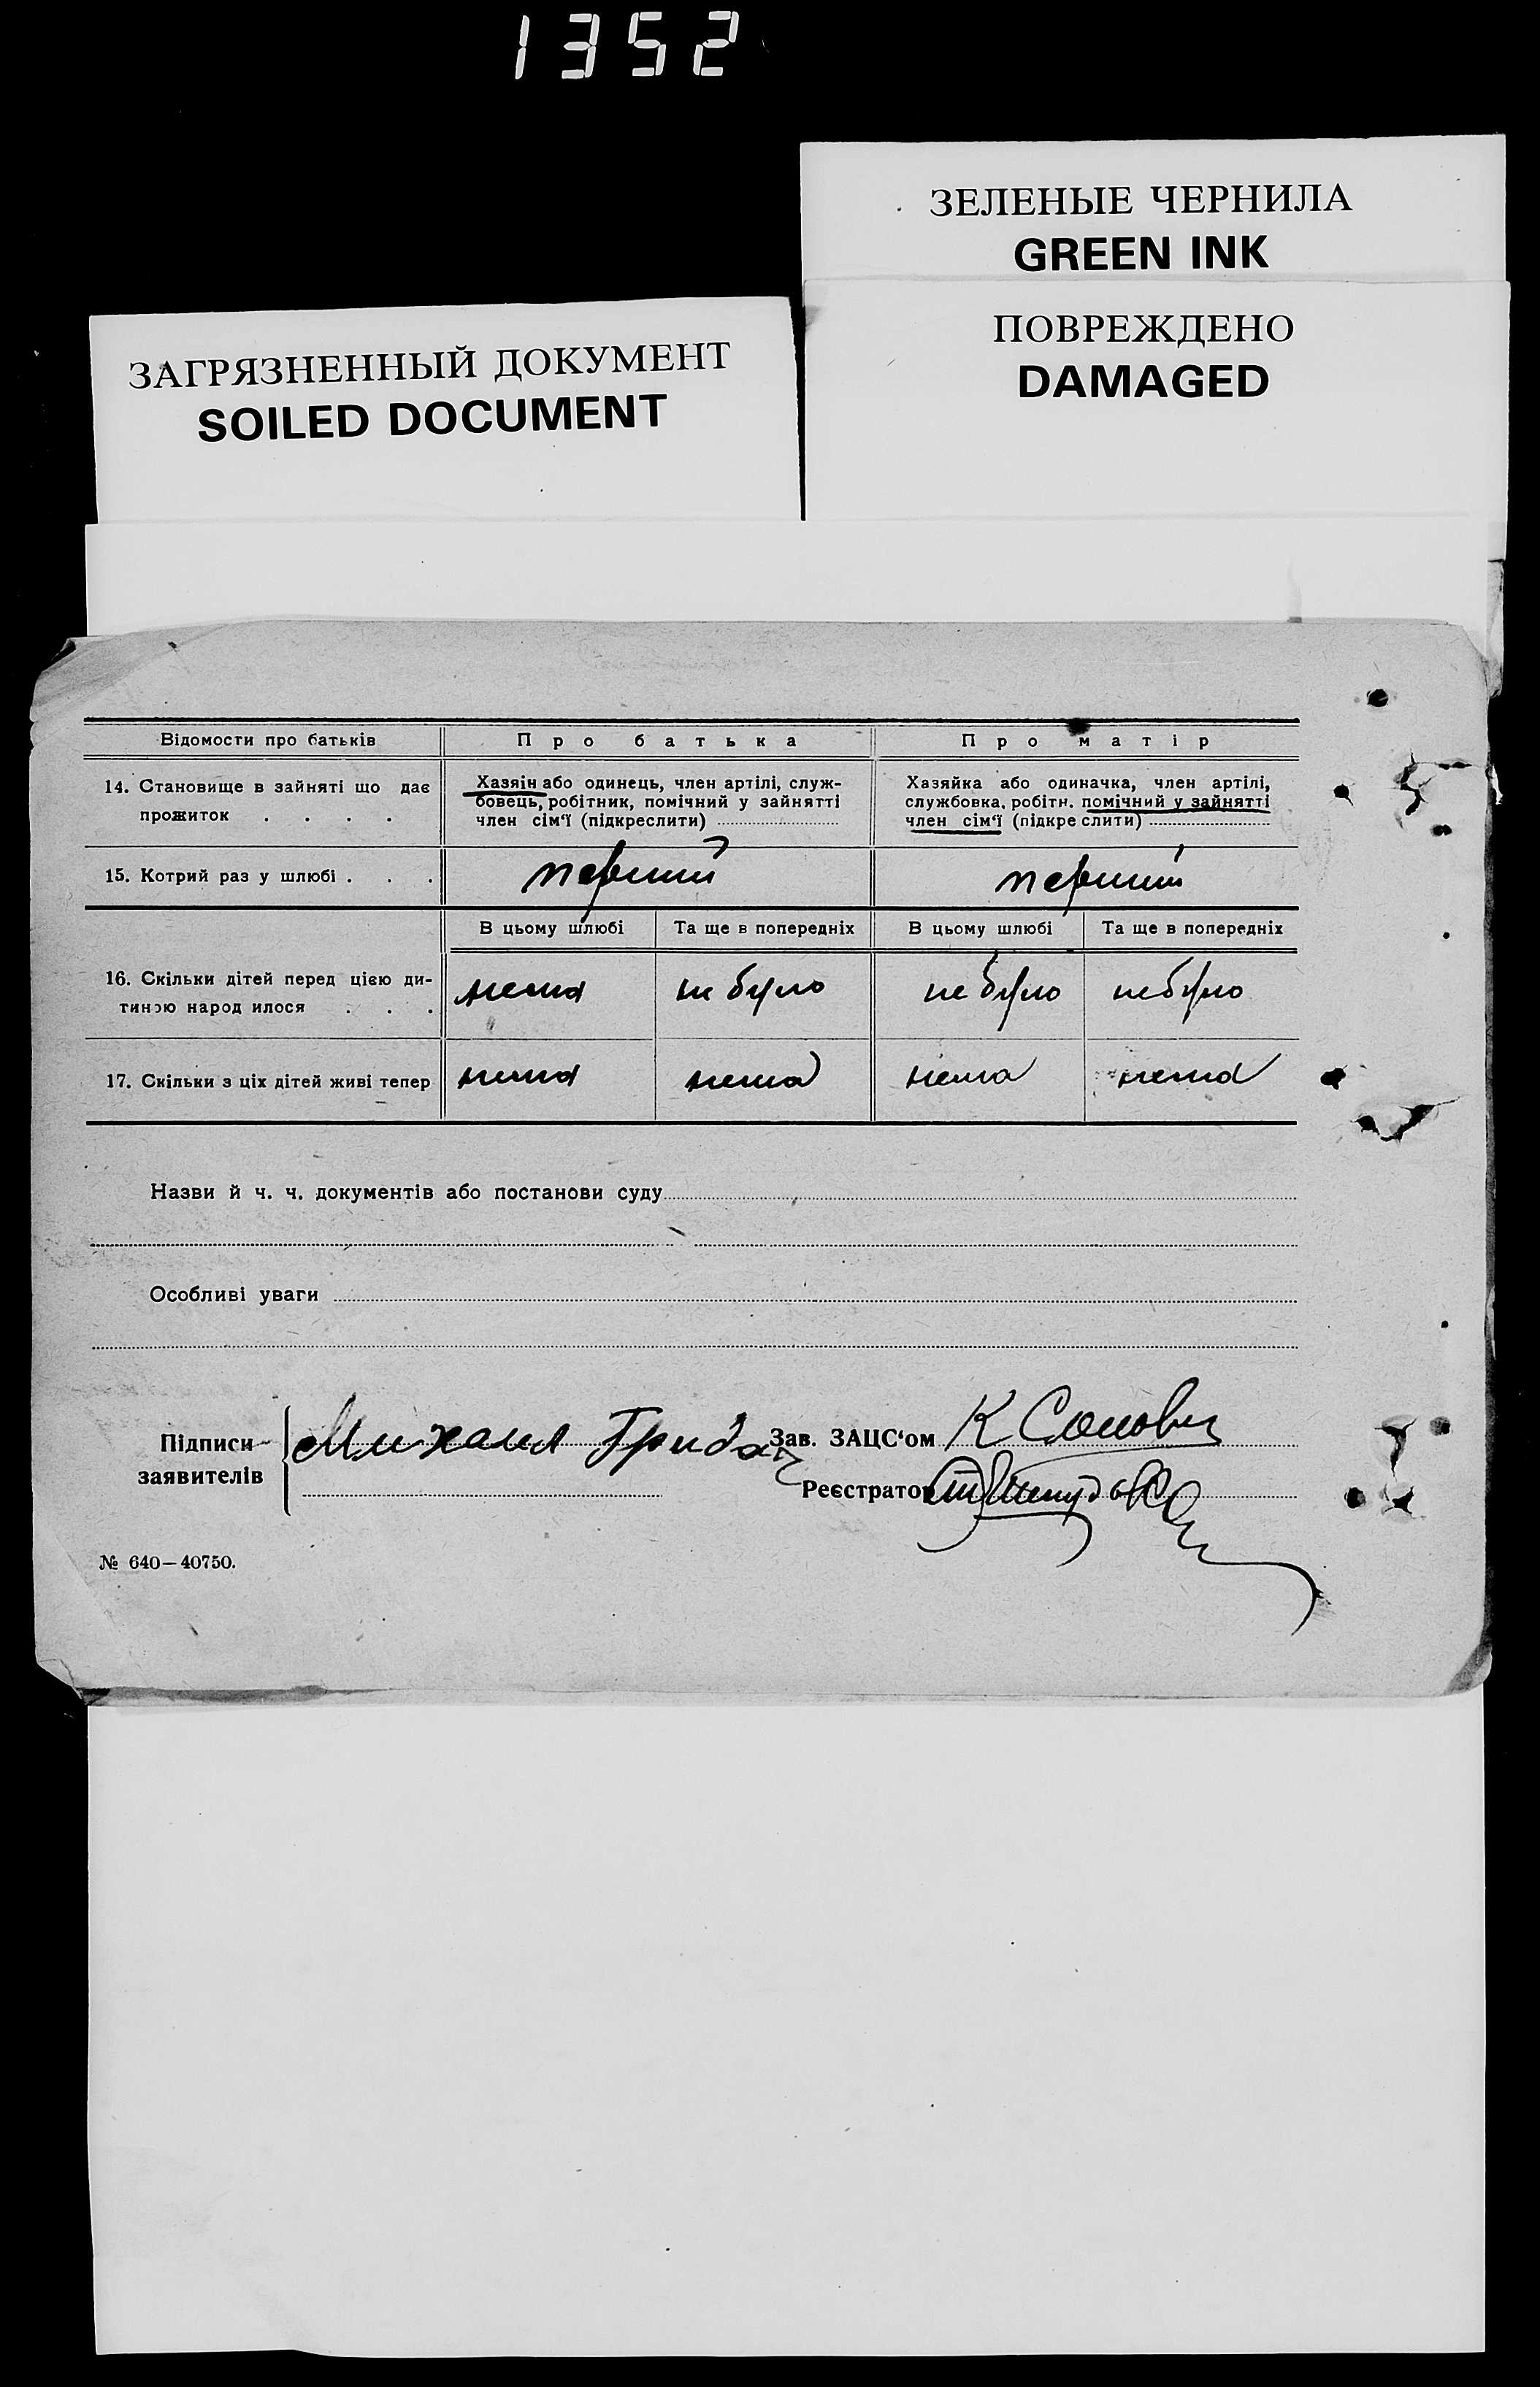 1352
ЗЕЛЕНЫЕ ЧЕРНИЛА
GREEN INK
ПОВРЕЖДЕНО
DAMAGED
ЗАГРЯЗНЕННЫЙ ДОКУМЕНТ
SOILED DOCUMENT
Відомости про батьків Про батька Про матір
14. Становище в зайняті що дає
прожиток . . . .
Хазяїн або одинець, член артілі, служ-
бовець, робітник, помічний у зайнятті
член сім'ї (підкреслити)
Хазяйка або одиначка, член артілі,
службовка, робітн. помічний у зайнятті
член сім'ї (підкреслити)
15. Котрий раз у шлюбі . . . перший перший
В цьому шлюбі Та ще в попередніх В цьому шлюбі Та ще в попередніх
16. Скільки дітей перед цією ди-
тиною народилося . . .
нема не було не було не було
17. Скільки з ціх дітей живі тепер нема нема нема нема
Назви й ч. ч. документів або постанови суду
Особливі уваги
Підписи
заявителів
Михаил
Зав. ЗАЦС'ом К
Реєстратор
№ 640—40750.